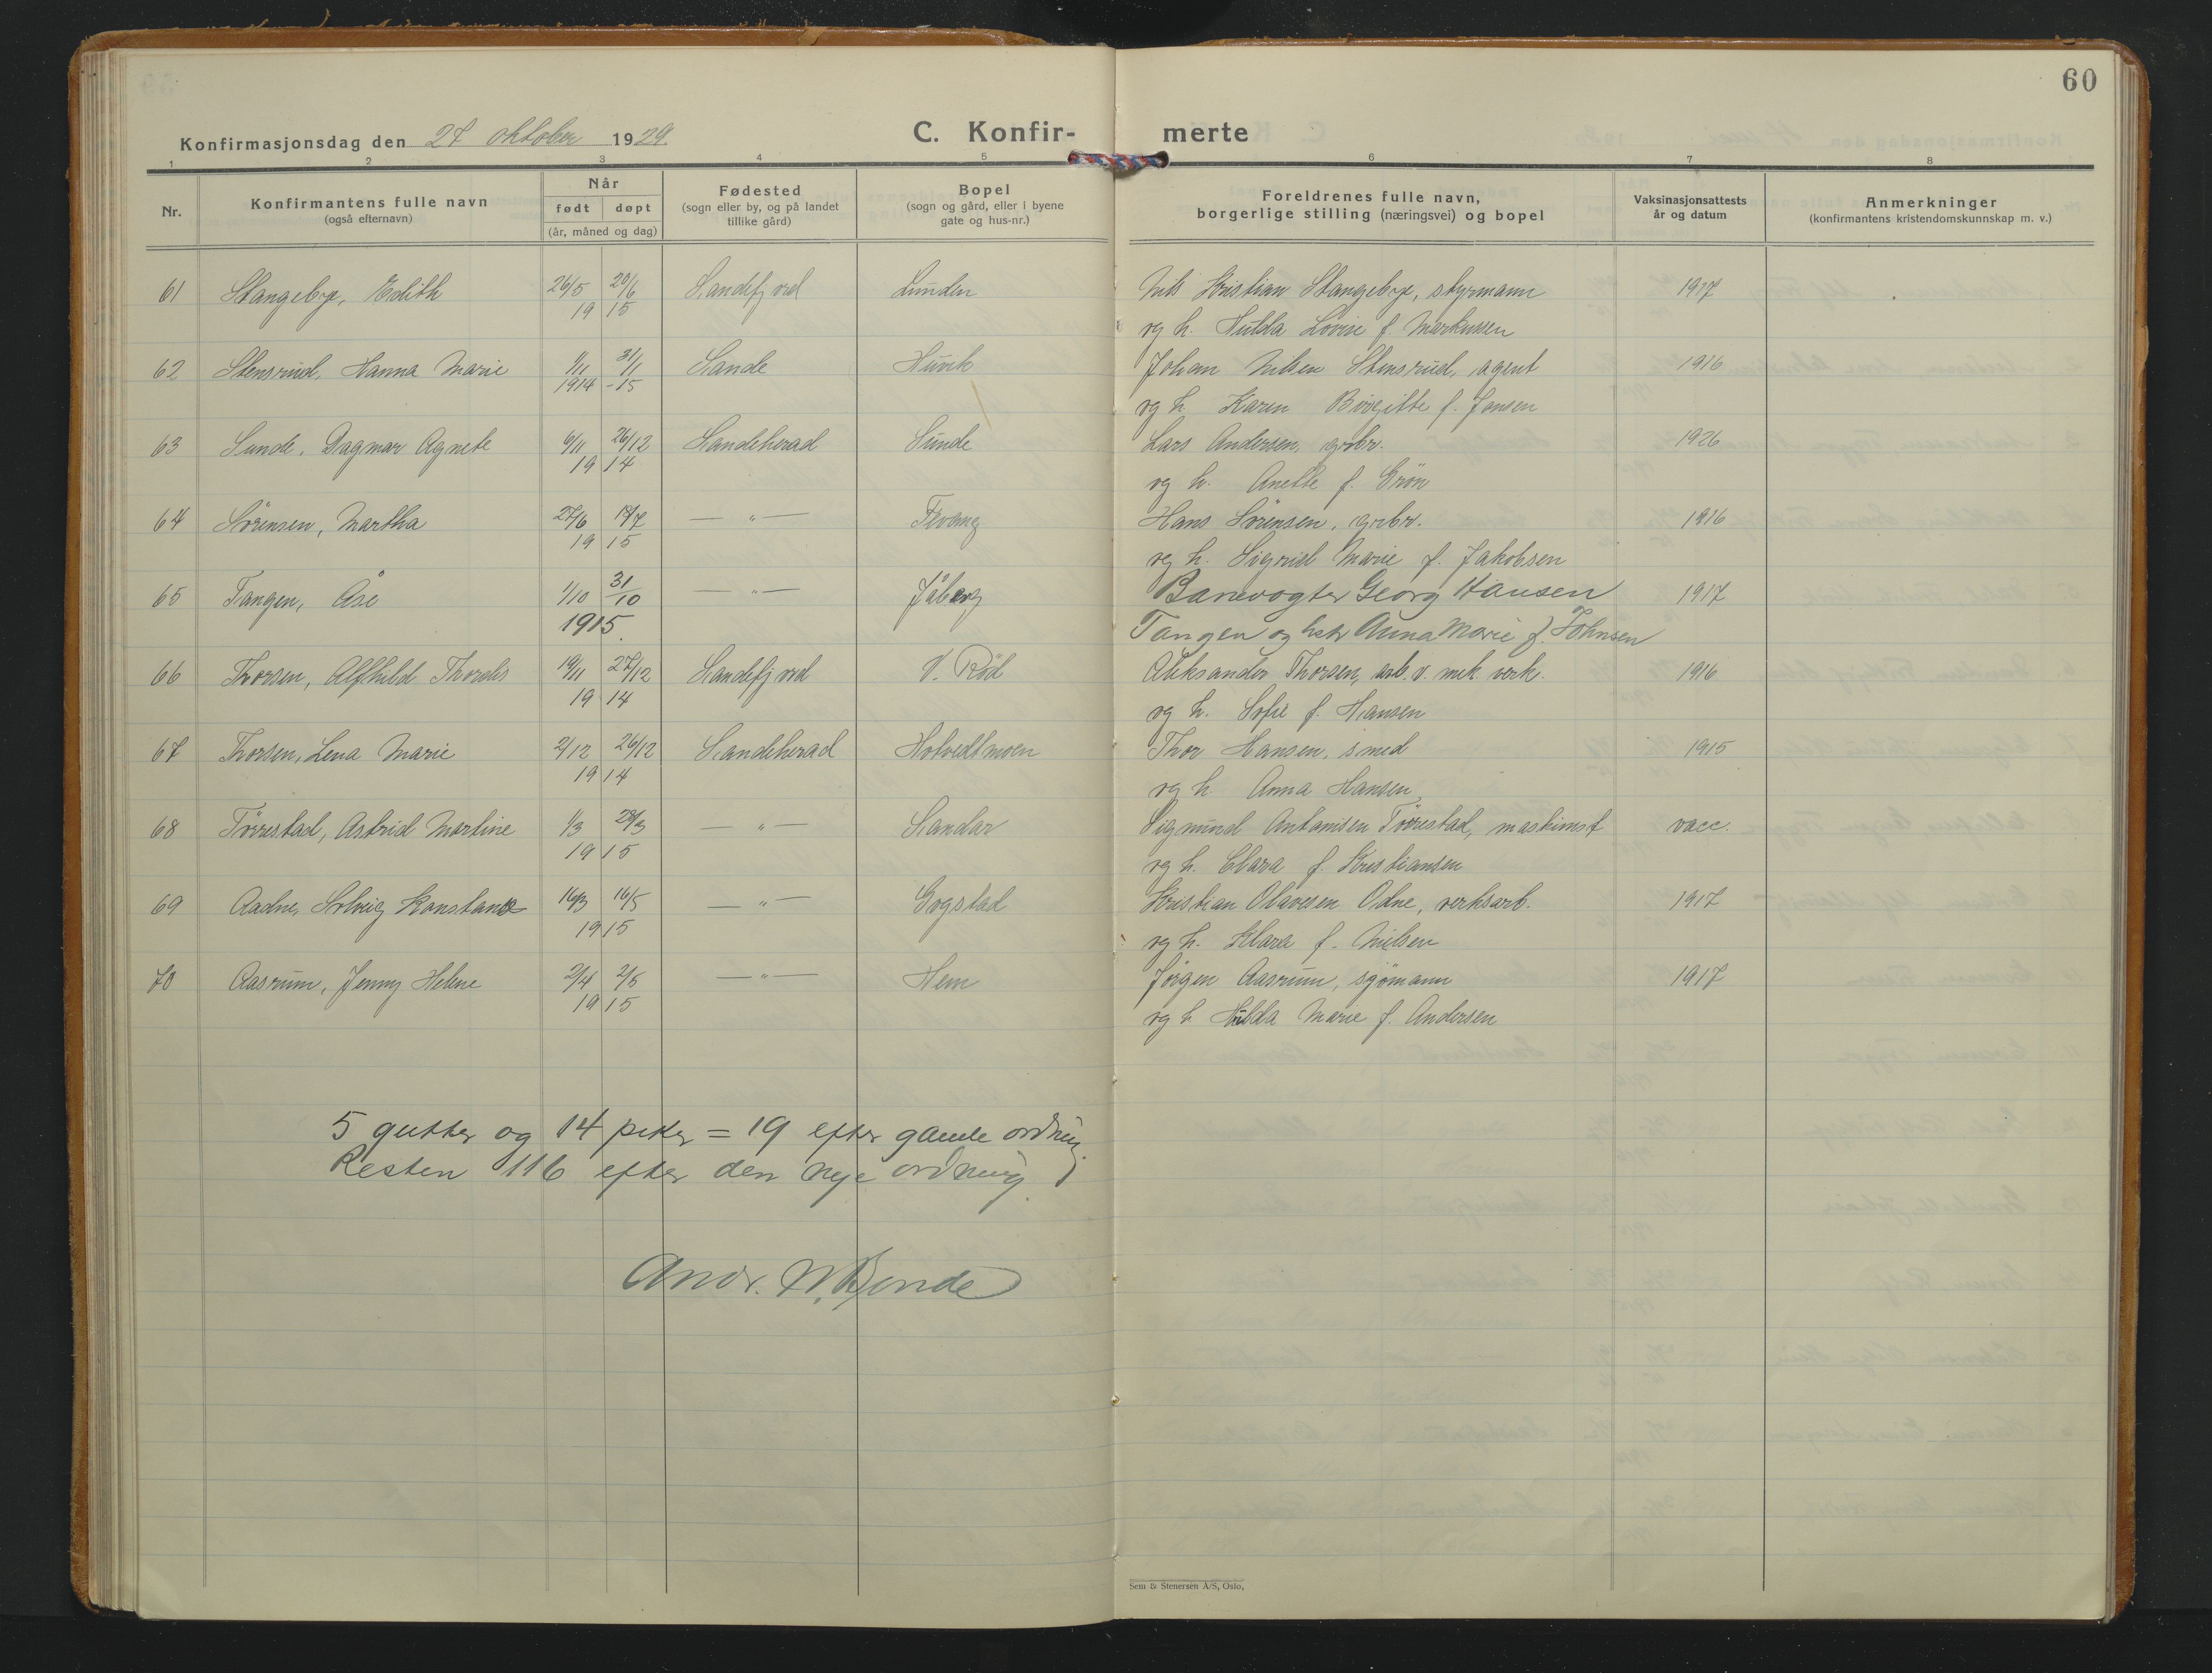 60
Konfirmasjonsdag den 27 oktober 1929. C. Konfir- merte
1 2 3 4 5 6 7 8
Nr.
Konfirmantens fulle navn
(også efternavn)
Når
født døpt
(år, måned og dag)
Fødested
(sogn eller by, og på landet
tillike gård)
Bopel
(sogn og gård, eller i byene
gate og hus-nr.)
Foreldrenes fulle navn,
borgerlige stilling (næringsvei) og bopel
Vaksinasjonsattests
år og datum
Anmerkninger
(konfirmantens kristendomskunnskap m. v.)
61 Stangebye, Edith 26/5 20/6 Sandefjord Lunden Nils Kristian Stangebye, styrmann 1917
19 15 og h. Hulda Lovise f. Markussen
62 Stensrud, Hanna Marie 1/11 31/1 Sande Huvik Johan Nilsen Stensrud, agent 1916
1914 -15 og h. Karen Birgitte f. Jansen
63 Sunde, Dagmar Agnete 6/11 26/12 Sandeherad Sunde Lars Andersen, grbr. 1926
19 14 og h. Anette f. Grön
64 Sörensen, Martha 27/6 18/7 — " — Fevang Hans Sörensen, grbr. 1916
19 15 og h. Sigrid Marie f. Jakobsen
65 Tangen, Åse 1/10 31/10 — " — Jåberg Banevogter Georg Hansen 1917
1915. Tangen og hstr Anna Marie f. Johnsen
66 Thorsen, Alfhild Thordis 19/11 27/12 Sandefjord V. Röd Aleksander Thorsen, arb. v. mek. verk. 1916
19 14 og h. Sofie f. Hansen
67 Thorsen, Lena Marie 2/12 26/12 Sandeherad Hotvedtmoen Thor Hansen, smed 1915
19 14 og h. Anna Hansen
68 Törrestad, Astrid Martine 1/3 28/3 — " — Sandar Sigmund Antonisen Törrestad, maskinist vacc.
19 15 og h. Clara f. Kristiansen
69 Aadne, Solveig Konstanse 16/3 16/5 — " — Gogstad Kristian Olavesen Odne, verksarb. 1917
19 15 og h. Klara f. Nielsen
70 Aasrum, Jenny Helene 2/4 2/5 — " — Hem Jörgen Aasrum, sjömann 1917
19 15 og h Hulda Marie f. Andersen
5 gutter og 14 piker = 19 efter gamle ordning
Resten 116 efter den nye ordning.
Andr. N. Bonde
Sem & Stenersen A/S, Oslo,